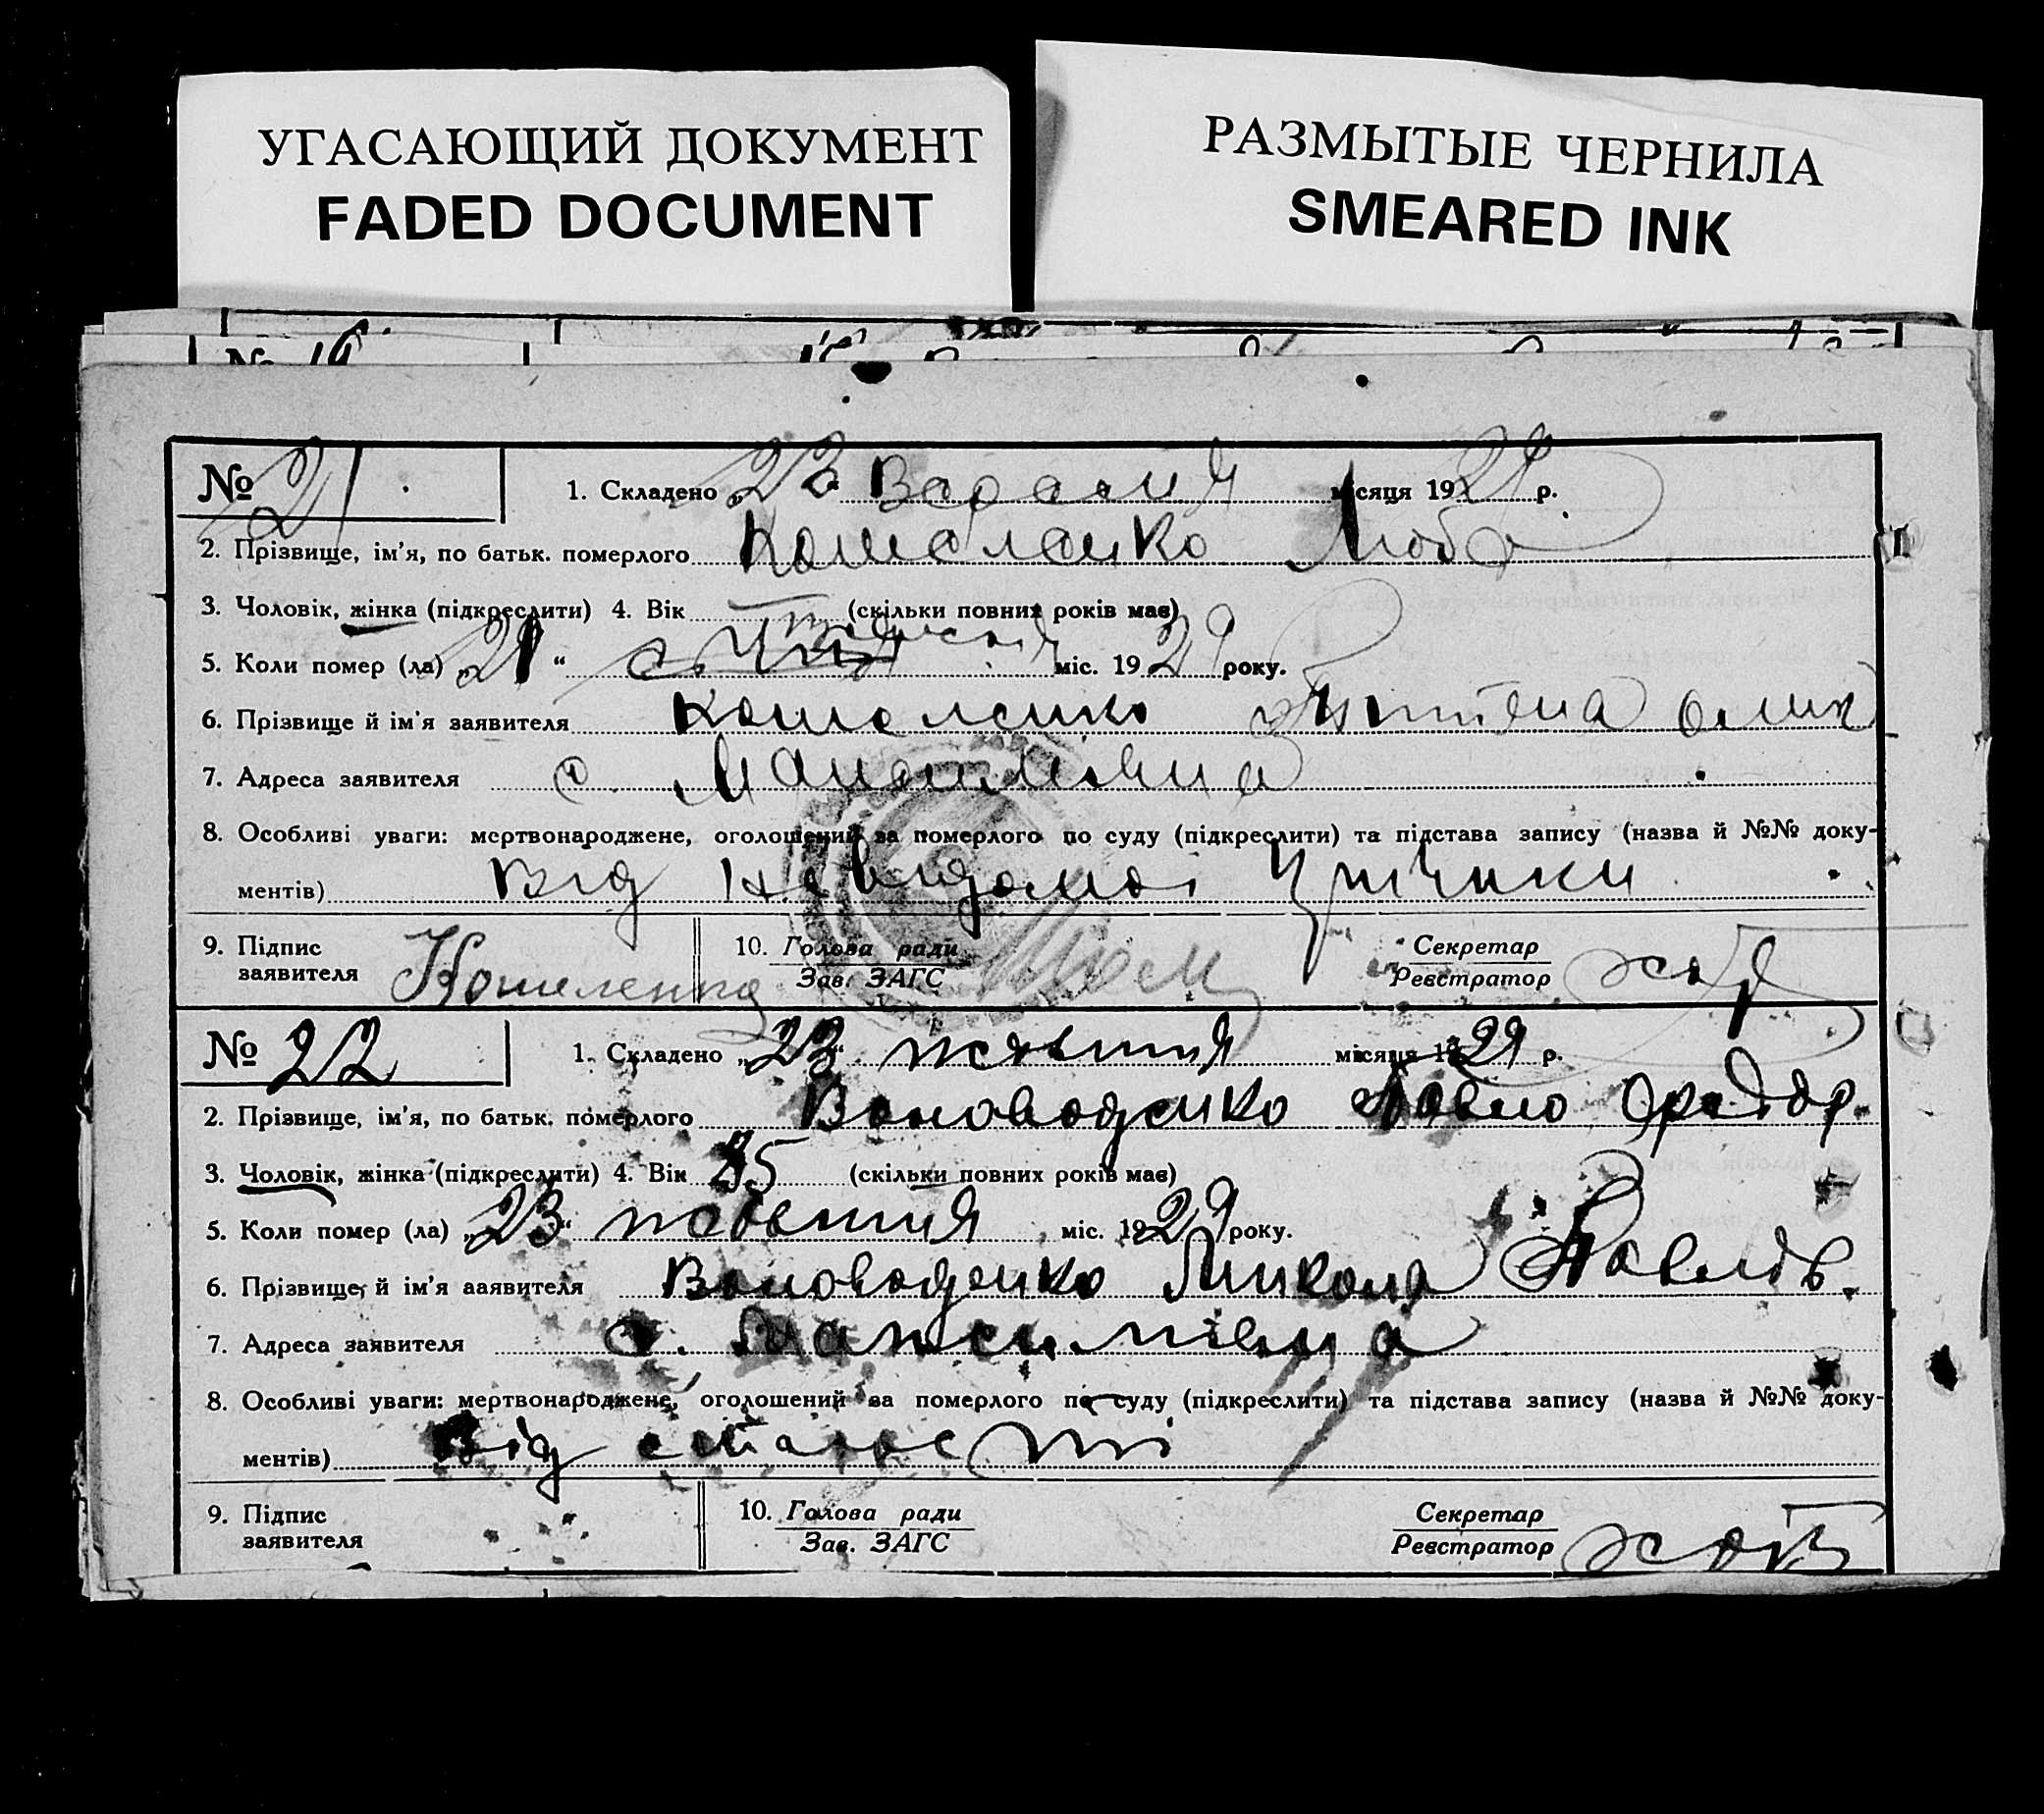 УГАСАЮЩИЙ ДОКУМЕНТ
FADED DOCUMENT
РАЗМЫТЫЕ ЧЕРНИЛА
SMEARED INK
№ 21
1. Складено „23“ Вересня місяця 1929 р.
2. Прізвище, ім'я, по батьк. померлого Кошеленко Люба
3. Чоловік, жінка (підкреслити) 4. Вік (скільки повних років має)
5. Коли помер (ла) „21“ міс. 1929 року.
6. Прізвище й ім'я заявителя Кошеленко
7. Адреса заявителя с. Максимівка
8. Особливі уваги: мертвонароджене, оголошений за померлого по суду (підкреслити) та підстава запису (назва й №№ доку-
ментів) Від невидомоі причини
9. Підпис заявителя Кошеленко
10. Голова ради
Зав. ЗАГС
Секретар
Реєстратор
№ 22
1. Складено „23“ жовтня місяця 1929 р.
2. Прізвище, ім'я, по батьк. померлого Воловоденко Павло Федор.
3. Чоловік, жінка (підкреслити) 4. Вік (скільки повних років має)
5. Коли помер (ла) „23“ жовтня міс. 1929 року.
6. Прізвище й ім'я заявителя Воловоденко Микола Павлов.
7. Адреса заявителя с. Максимівка
8. Особливі уваги: мертвонароджене, оголошений за померлого по суду (підкреслити) та підстава запису (назва й №№ доку-
ментів) Від старости
9. Підпис заявителя
10. Голова ради
Зав. ЗАГС
Секретар
Реєстратор